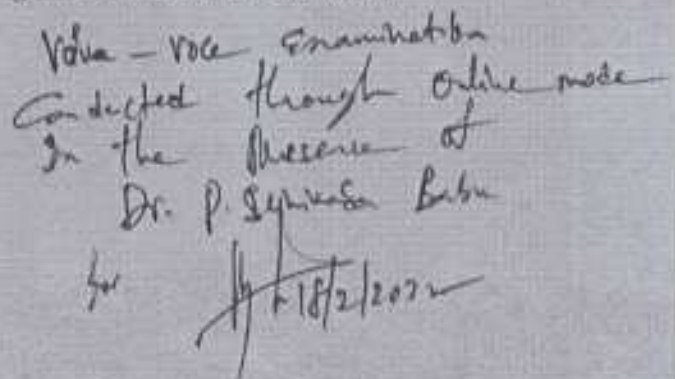 Viva - Voce Examination
Conducted through Online mode
In the Presence of
Dr. P. Srinivasa Babu
for
18/2/2022